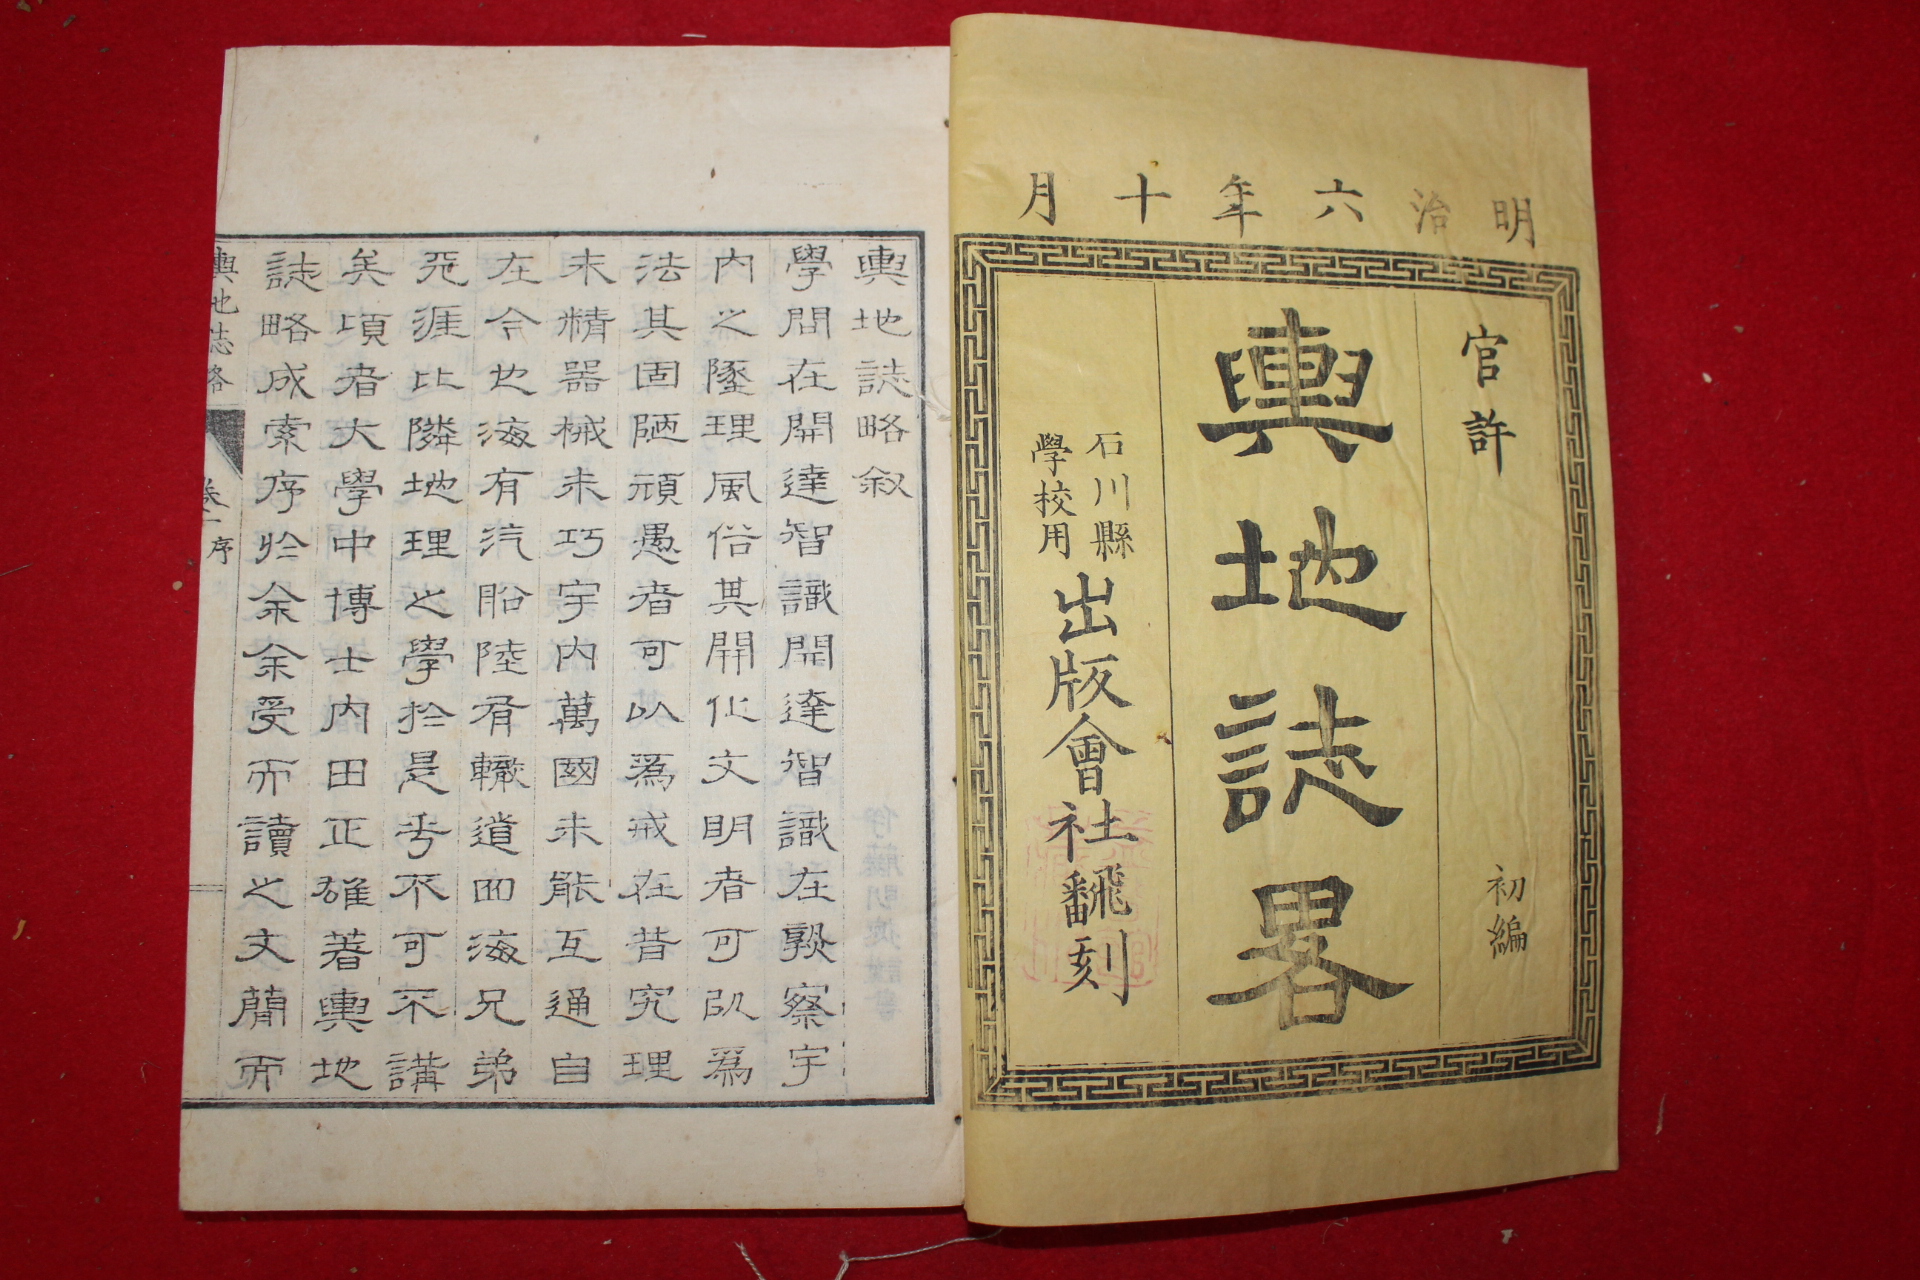 明治六年十月
官許
初編
輿地誌畧
石川縣
學校用
出版會社飜刻
輿地誌略叙
學問在開達智識開達智識在
察宇
內之
理風俗其開化文明者可以為
法其固陋頑愚者可以為戒在昔究理
未精器械未巧宇內萬國未能互通自
在今也海有汽船陸有轍道四海兄弟
涯比隣地理之學於是乎不可不講
矣項者大學中博士內田正雄著輿地
誌略成索序於余余受而讀之文簡而
輿地誌略
卷一
序